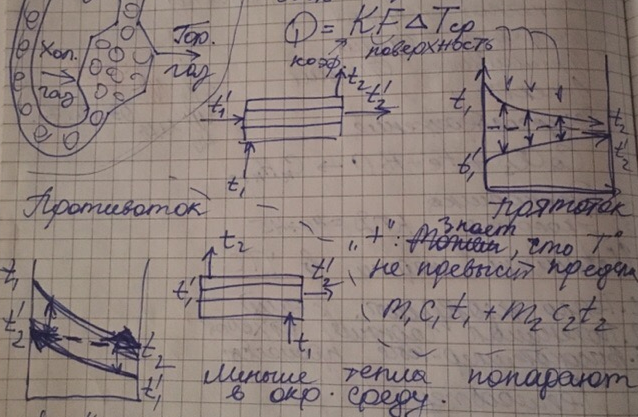 Хол. газ
Гор. газ
Q = KF ΔTср
коэф. поверхность
t₁'
t₂
t₂'
t₁
t₁
t₁'
t₂
t₂'
прямоток
Противоток
"+": Знает, что T°
не превысит предела
m₁c₁t₁ + m₂c₂t₂
t₁
t₂'
t₂
t₁'
t₂
t₁'
t₂'
t₁
Меньше тепла попадают
в окр. среду.